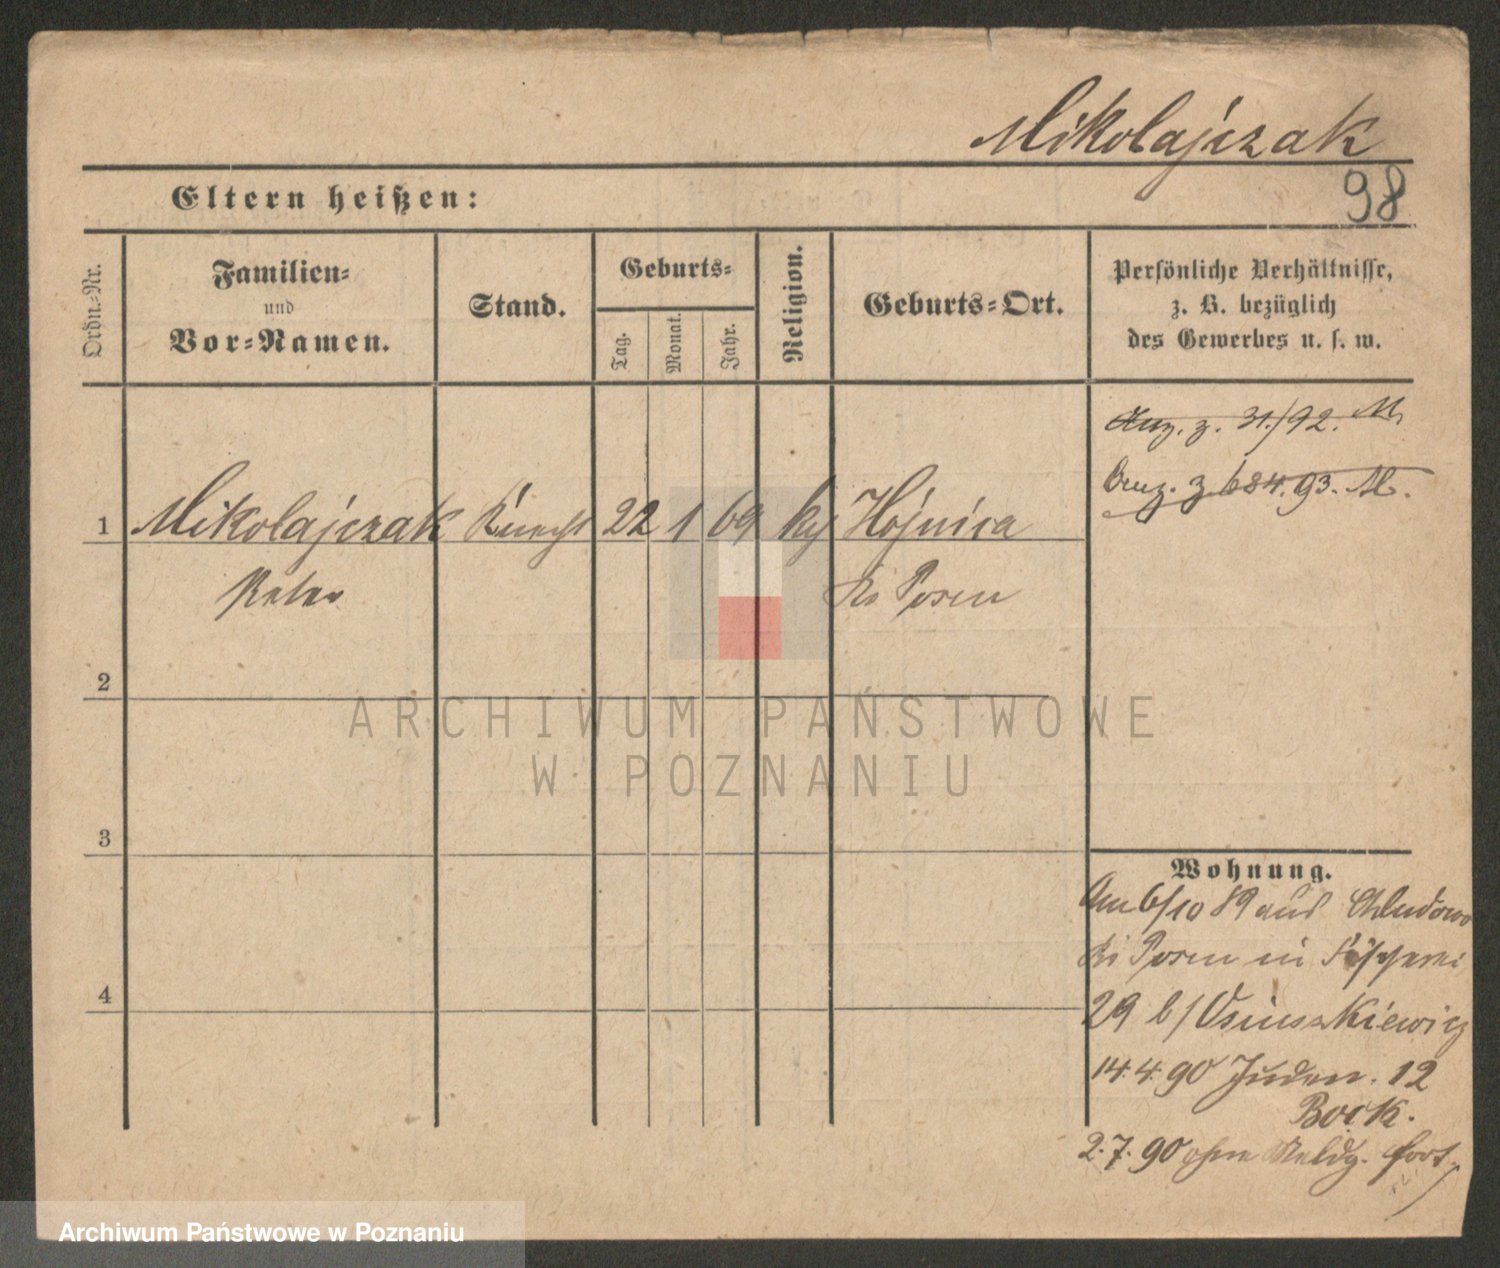 Mikolajczak
98
Eltern heißen:
Ordn.-Nr.
Familien-
und
Vor-Namen.
Stand.
Geburts-
Tag.
Monat.
Jahr.
Religion.
Geburts-Ort.
Persönliche Verhältnisse,
z. B. bezüglich
des Gewerbes u. s. w.
z. 31./92. M.
z 684.93. M.
1 Mikolajczak Knecht 22 1 69 Hojnica
Peter Posen
2
3
4
Wohnung.
Am 6/10 89 aus Chludowo
Posen in
29 b/
14.4.90 Juden. 12
Bock.
2.7.90 ohne Meldg. fort.
ARCHIWUM PAŃSTWOWE
W POZNANIU
Archiwum Państwowe w Poznaniu